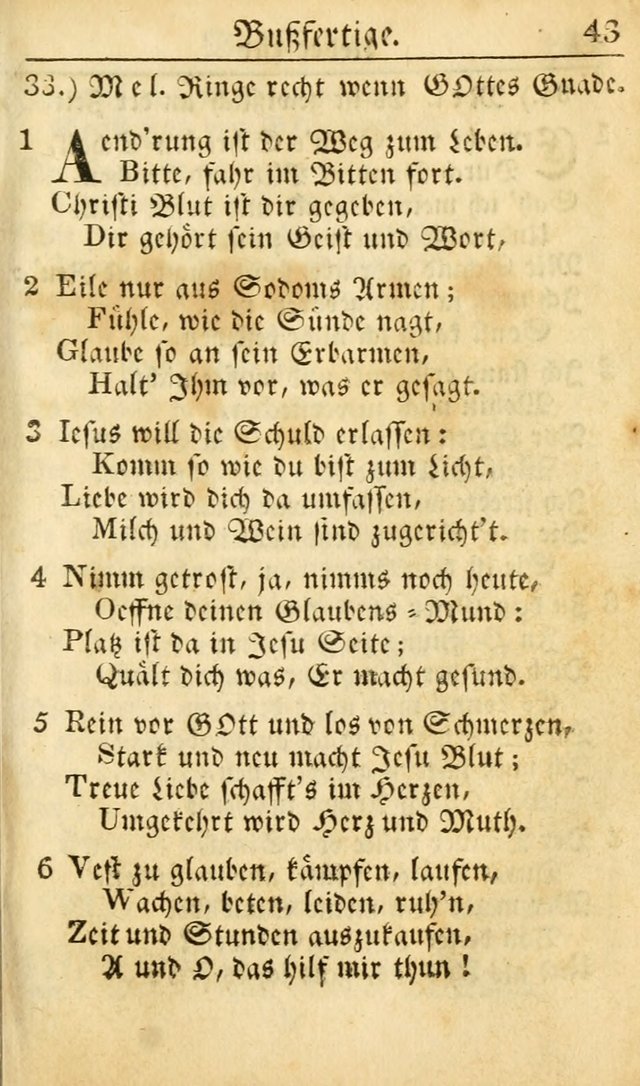 Bußfertige. 43
33.) Mel. Ringe recht wenn GOttes Gnade.
1 Aend'rung ist der Weg zum Leben.
Bitte, fahr im Bitten fort.
Christi Blut ist dir gegeben,
Dir gehört sein Geist und Wort,
2 Eile nur aus Sodoms Armen;
Fühle, wie die Sünde nagt,
Glaube so an sein Erbarmen,
Halt' Ihm vor, was er gesagt.
3 Iesus will die Schuld erlassen:
Komm so wie du bist zum Licht,
Liebe wird dich da umfassen,
Milch und Wein sind zugericht't.
4 Nimm getrost, ja, nimms noch heute,
Oeffne deinen Glaubens-Mund:
Platz ist da in Jesu Seite;
Quält dich was, Er macht gesund.
5 Rein vor GOtt und los von Schmerzen,
Stark und neu macht Jesu Blut;
Treue Liebe schafft's im Herzen,
Umgekehrt wird Herz und Muth.
6 Vest zu glauben, kämpfen, laufen,
Wachen, beten, leiden, ruh'n,
Zeit und Stunden auszukaufen,
A und O, das hilf mir thun!